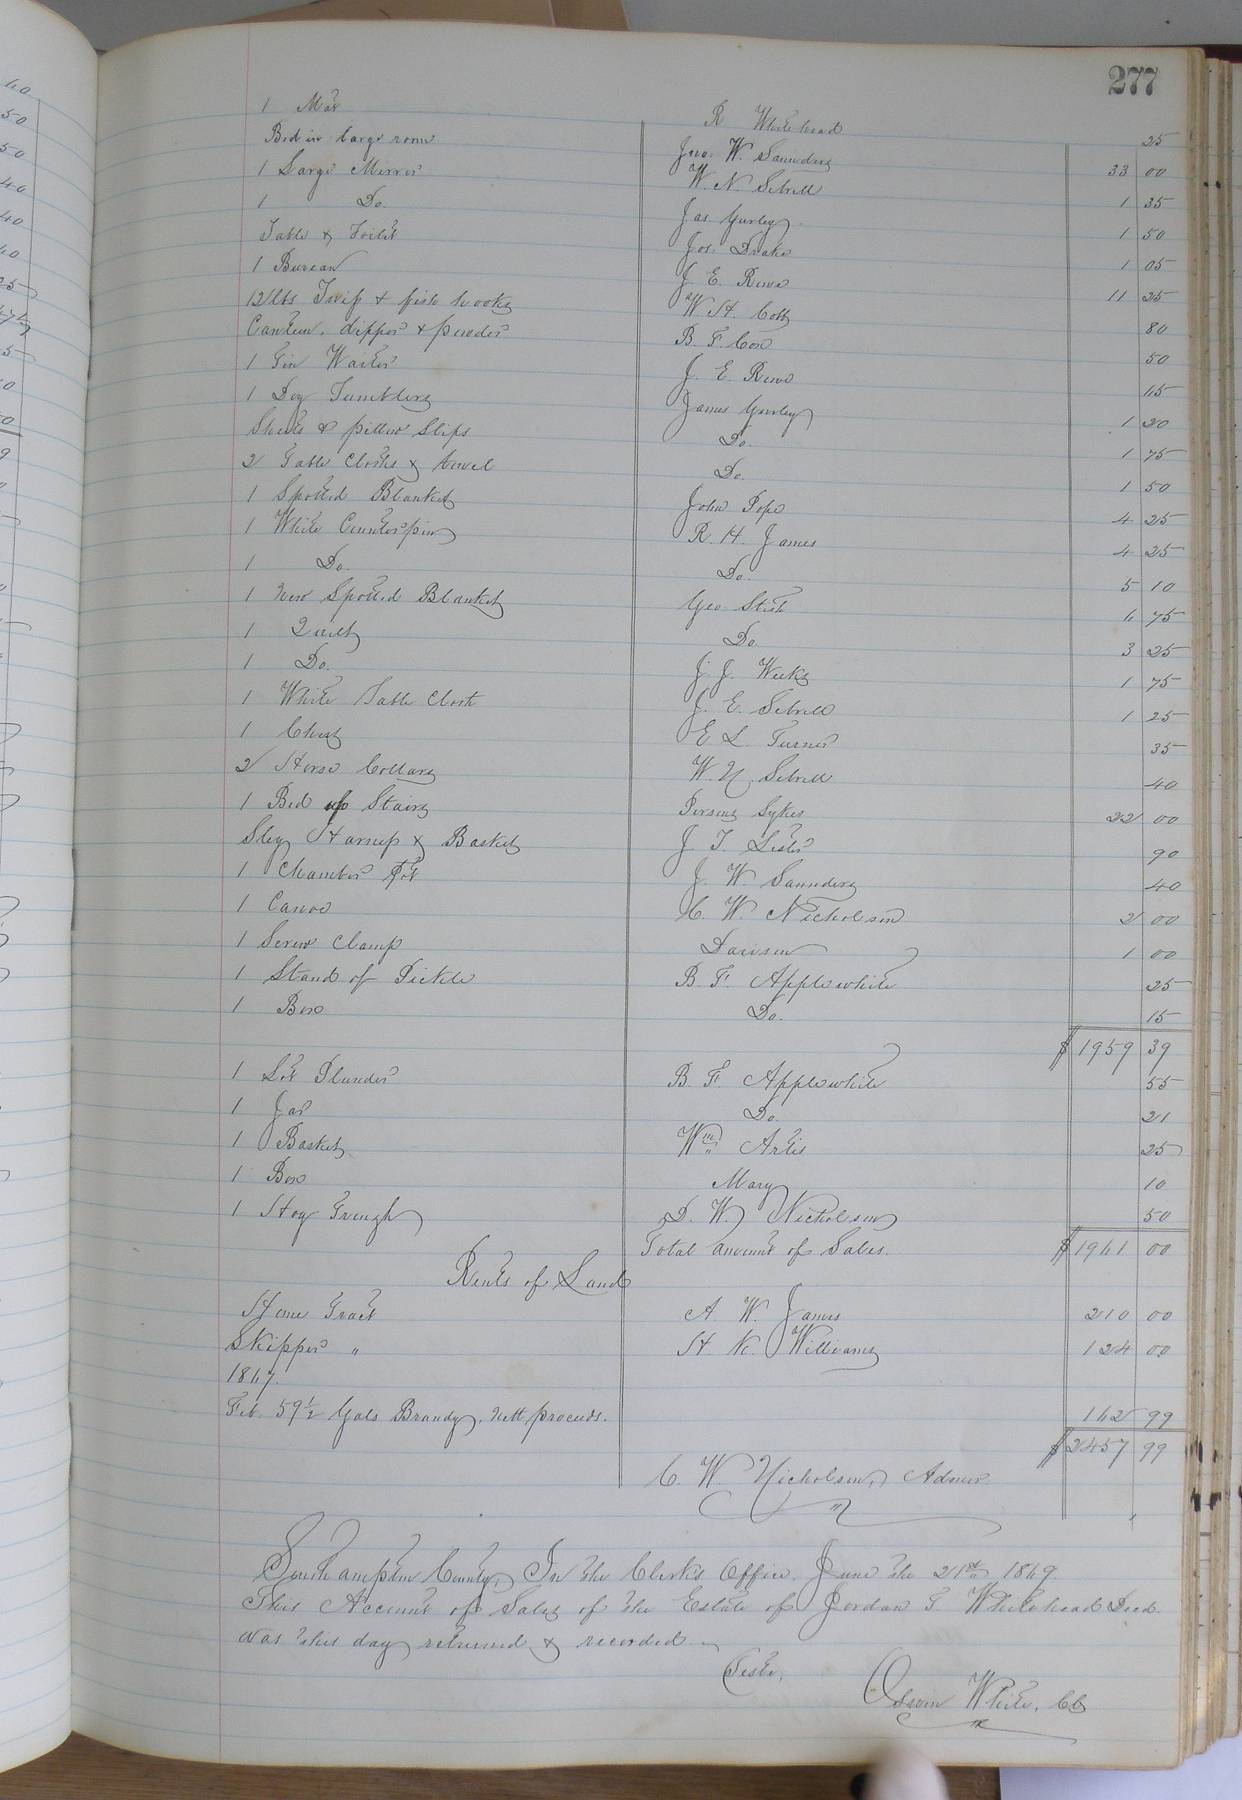 277
1 Mat R Whitehead 25
Bed in large room Jno. W. Saunders 33 00
1 Large Mirror W. N Sebrell 1 35
1 Do. Jas. Gurley 1 50
Table & Toilet Jos. Drake 1 05
1 Bureau J E. Rowe 11 25
12 lbs & fish hooks W H. Cobb 80
Canteen, dipper & powder B. F. Cox 50
1 Tin Waiter J. E. Rowe 45
1 Doz Tumblers James Gurley 1 20
Sheets & pillow Slips Do. 1 75
2 Table Cloths & towel Do. 1 50
1 Spotted Blanket John Pope 4 25
1 White Counterpin R. H. James 4 25
1 Do. Do. 5 10
1 New Spotted Blanket Geo Stith 6 75
1 Quilt Do. 3 25
1 Do. J. J. Weeks 1 75
1 White Table Cloth J. E. Sebrell 1 25
1 Chest E L. Turner 35
2 Horse Collars W. N. Sebrell 40
1 Bed up Stairs Persons Sykes 22 00
& Basket J T. 90
1 Chamber Pot J. W. Saunders 40
1 Canoe C. W. Nicholson 2 00
1 Screw Clamp Davison 1 00
1 Stand of Pickle B. F. Applewhite 25
1 Box Do. 15
$ 1959 39
1 Lot Plunder B. F. Applewhite 55
1 Jar Do. 21
1 Basket Wm Artis 25
1 Box Mary 10
1 Hog Trough D. W. Nicholson 50
Total amount of Sales. $ 1961 00
Rents of Land
Home Tract A. W. James 210 00
Skipper " H. K. Williams 124 00
1867.
Feb. 59½ Gals Brandy, nett, proceeds. 162 99
$ 2457 99
C. W. Nicholson, Admor.
Southampton County, In the Clerk's Office, June the 21st 1869.
This Account of Sales of the Estate of Jordan T. Whitehead Decd.
was this day returned & recorded
Teste,
White, Clk